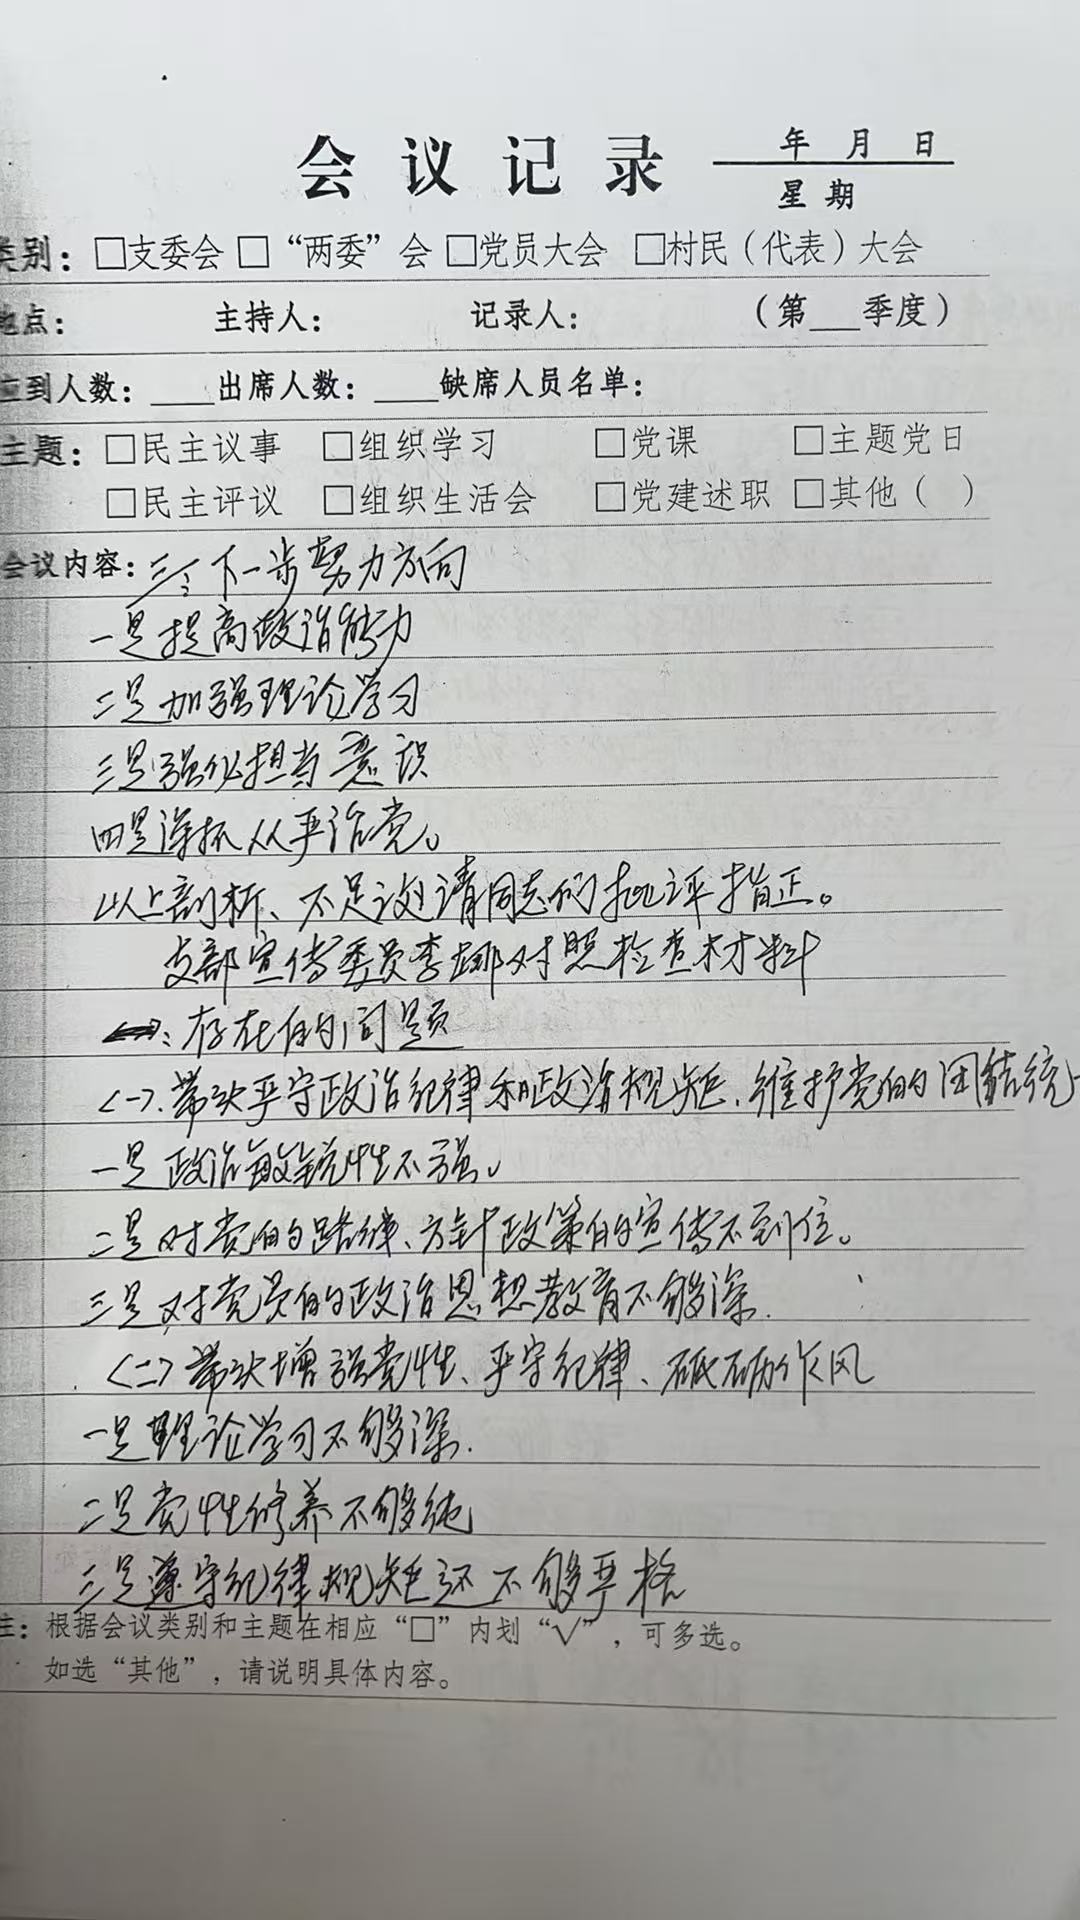 会议记录 年 月 日
星期
类别：□支委会 □“两委”会 □党员大会 □村民（代表）大会
地点： 主持人： 记录人： （第___季度）
应到人数：____出席人数：____缺席人员名单：
主题：□民主议事 □组织学习 □党课 □主题党日
□民主评议 □组织生活会 □党建述职 □其他（ ）
会议内容：三、下一步努力方向
一是提高政治能力
二是加强理论学习
三是强化担当意识
四是深抓从严治党。
以上剖析、不足之处请同志们批评指正。
支部宣传委员李娜对照检查材料
一、存在的问题
（一）、带头严守政治纪律和政治规矩、维护党的团结统一
一是政治敏锐性不强。
二是对党的路线、方针政策的宣传不到位。
三是对党员的政治思想教育不够深.
（二）带头增强党性、严守纪律、砥砺作风
一是理论学习不够深.
二是党性修养不够纯
三是遵守纪律规矩还不够严格
注：根据会议类别和主题在相应“□”内划“√”，可多选。
如选“其他”，请说明具体内容。